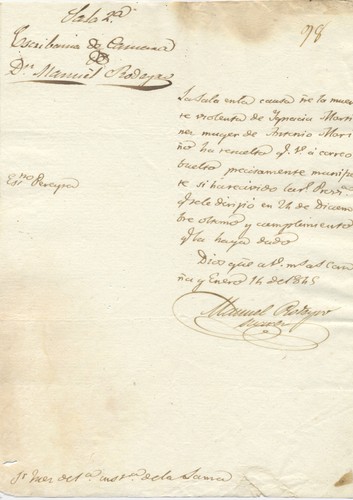 98
Sala 2.ª
Escribania de Camara
de
D.n Manuel Rodeyro
La Sala enta causa ñe la muer
te violenta de Ignacia Marti
nez muger de Antonio Marti
ño ha resuelto q. V. á correo
buelto precisamente manifies
te si ha recivido la rl. Prov.on
q.e se le dirijio en 24 de Diciem
bre ultimo y cumplimiento
q.e la haya dado
Dios gũe a V. m.s a.s Coru
ña y Enero 14 de 1845
Manuel Rodeyro
Es.no Pereyra
S.r Juez de 1.ª inst.ª de la